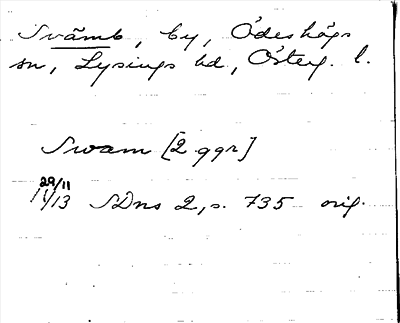 Svämb, by, Ödeshögs
sn, Lysings hd, Österg. l.
Swam [2 ggr]
29/11
1413 SDns 2, s. 735 orig.